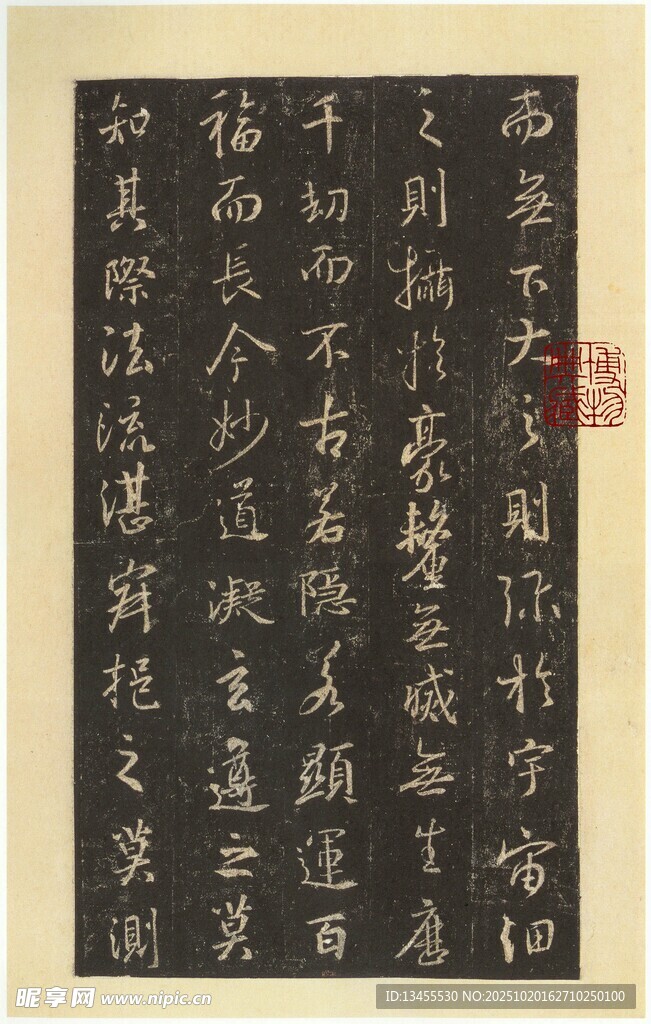 而無下大之則彌於宇宙細
之則攝於豪釐無滅無生歷
千劫而不古若隱若顯運百
福而長今妙道凝玄遵之莫
知其際法流湛寂挹之莫測
博物
典藏
昵享网 www.nipic.cn
ID:13455530 NO:20251020162710250100